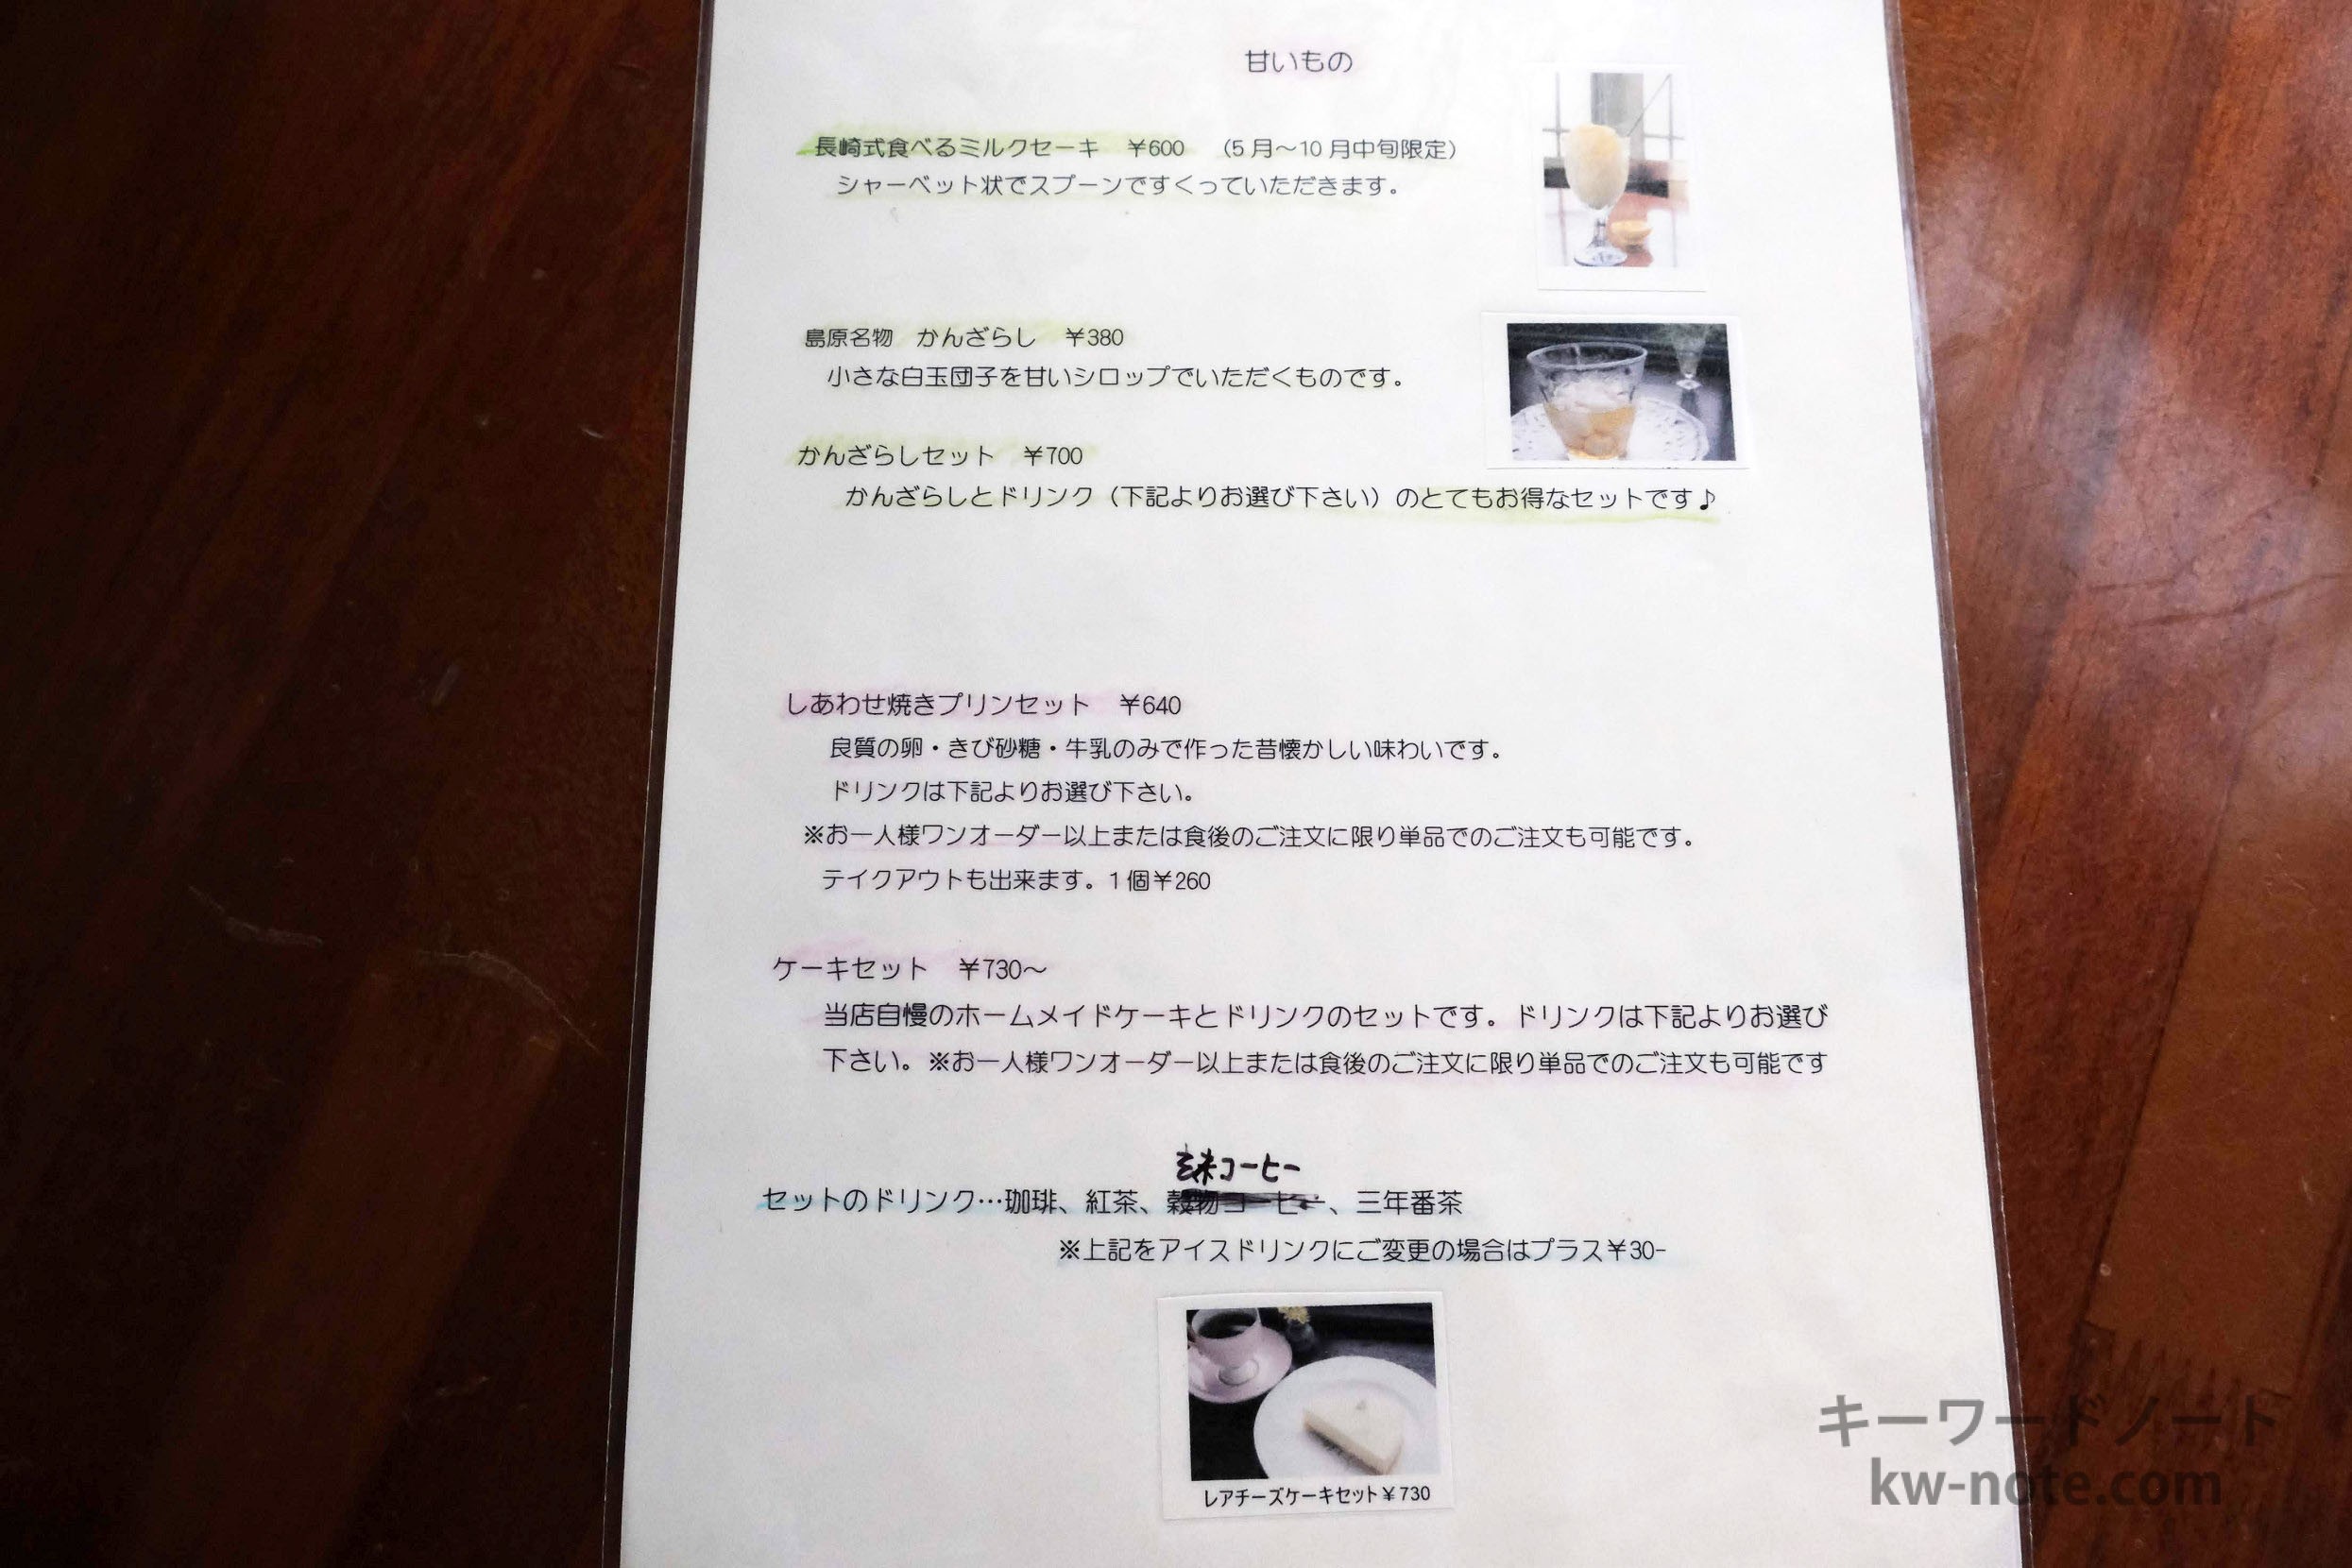 甘いもの
長崎式食べるミルクセーキ　￥600　（5月～10月中旬限定）
シャーベット状でスプーンですくっていただきます。
島原名物　かんざらし　￥380
小さな白玉団子を甘いシロップでいただくものです。
かんざらしセット　￥700
かんざらしとドリンク（下記よりお選び下さい）のとてもお得なセットです♪
しあわせ焼きプリンセット　￥640
良質の卵・きび砂糖・牛乳のみで作った昔懐かしい味わいです。
ドリンクは下記よりお選び下さい。
※お一人様ワンオーダー以上または食後のご注文に限り単品でのご注文も可能です。
テイクアウトも出来ます。1個￥260
ケーキセット　￥730～
当店自慢のホームメイドケーキとドリンクのセットです。ドリンクは下記よりお選び
下さい。※お一人様ワンオーダー以上または食後のご注文に限り単品でのご注文も可能です
玄米コーヒー
セットのドリンク…珈琲、紅茶、穀物コーヒー、三年番茶
※上記をアイスドリンクにご変更の場合はプラス￥30-
レアチーズケーキセット￥730
キーワードノート
kw-note.com